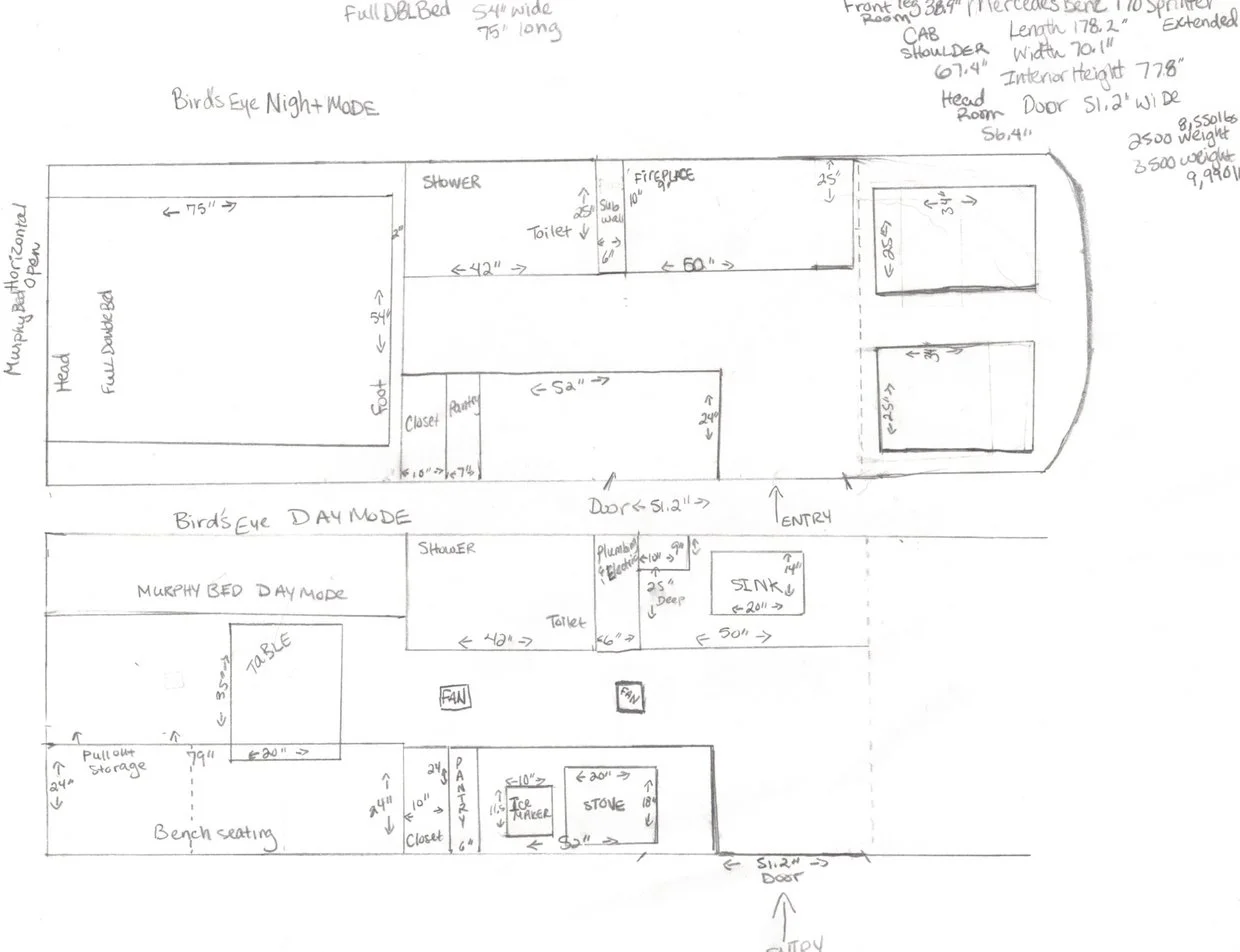 Full DBL Bed 54" wide
75" long
Front leg 38.9" Mercedes Benz 170 Sprinter
Room
Extended
CAB
SHOULDER
67.4"
Length 178.2"
Width 70.1"
Interior Height 77.8"
Head
Room
56.4"
Door 51.2" WIDE
8,550lbs
2500 weight
3500 weight
9,990
Bird's Eye Night MODE
Murphy Bed Horizontal
Open
← 75" →
Head
Full Double Bed
← 54" →
Foot
2"
SHOWER
Toilet
25"
← 42" →
Sub
wall
6"
FIREPLACE
9"
10"
25"
← 50" →
← 34" →
← 25"
Closet
Pantry
← 10" →
← 7" →
← 52" →
24"
← 25" →
Door ← 51.2" →
ENTRY
Bird's Eye DAY MODE
MURPHY BED DAY MODE
SHOWER
Toilet
← 42" →
Plumbing
& Electric
← 6" →
← 10" →
9"
25"
Deep
SINK
14"
← 20" →
← 50" →
TABLE
← 35" →
← 20" →
FAN
FAN
Pull out
Storage
79"
24"
24"
Bench seating
24"
10"
Closet
PANTRY
6"
← 10" →
11.5"
ICE
MAKER
← 20" →
STOVE
18"
← 52" →
← 51.2" →
DOOR
ENTRY